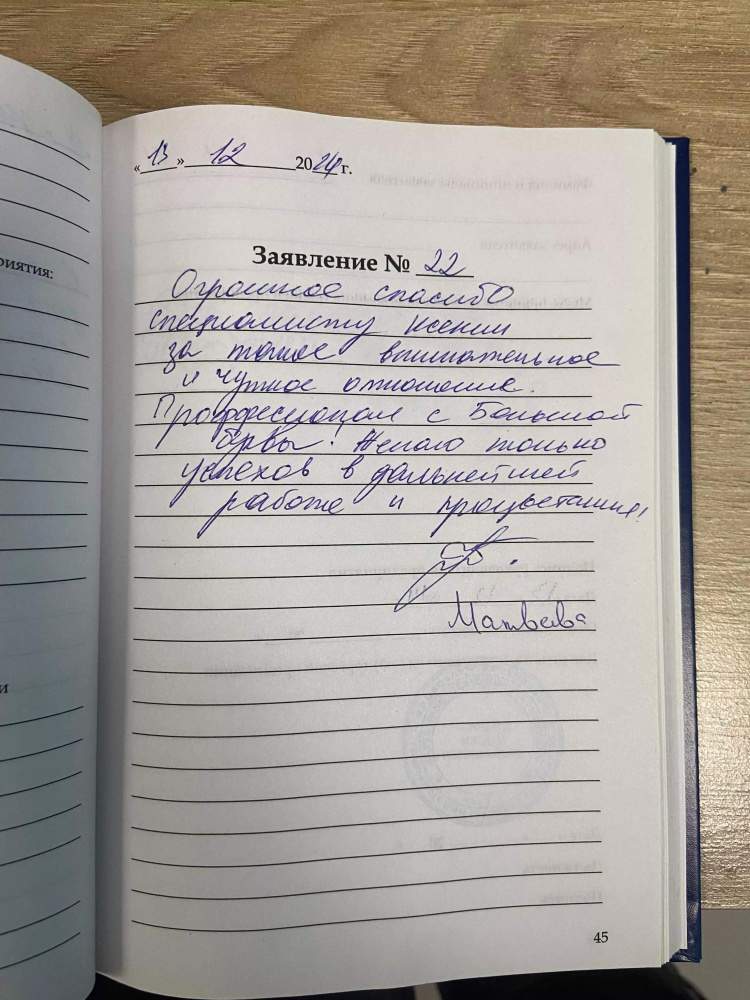 «13» 12 2024 г.
Заявление № 22
Огромное спасибо
специалисту Ксении
за такое внимательное
и чуткое отношение.
Профессионал с Большой
буквы! Желаю только
успехов в дальнейшей
работе и процветания!
Матвеева
45
риятия:
и